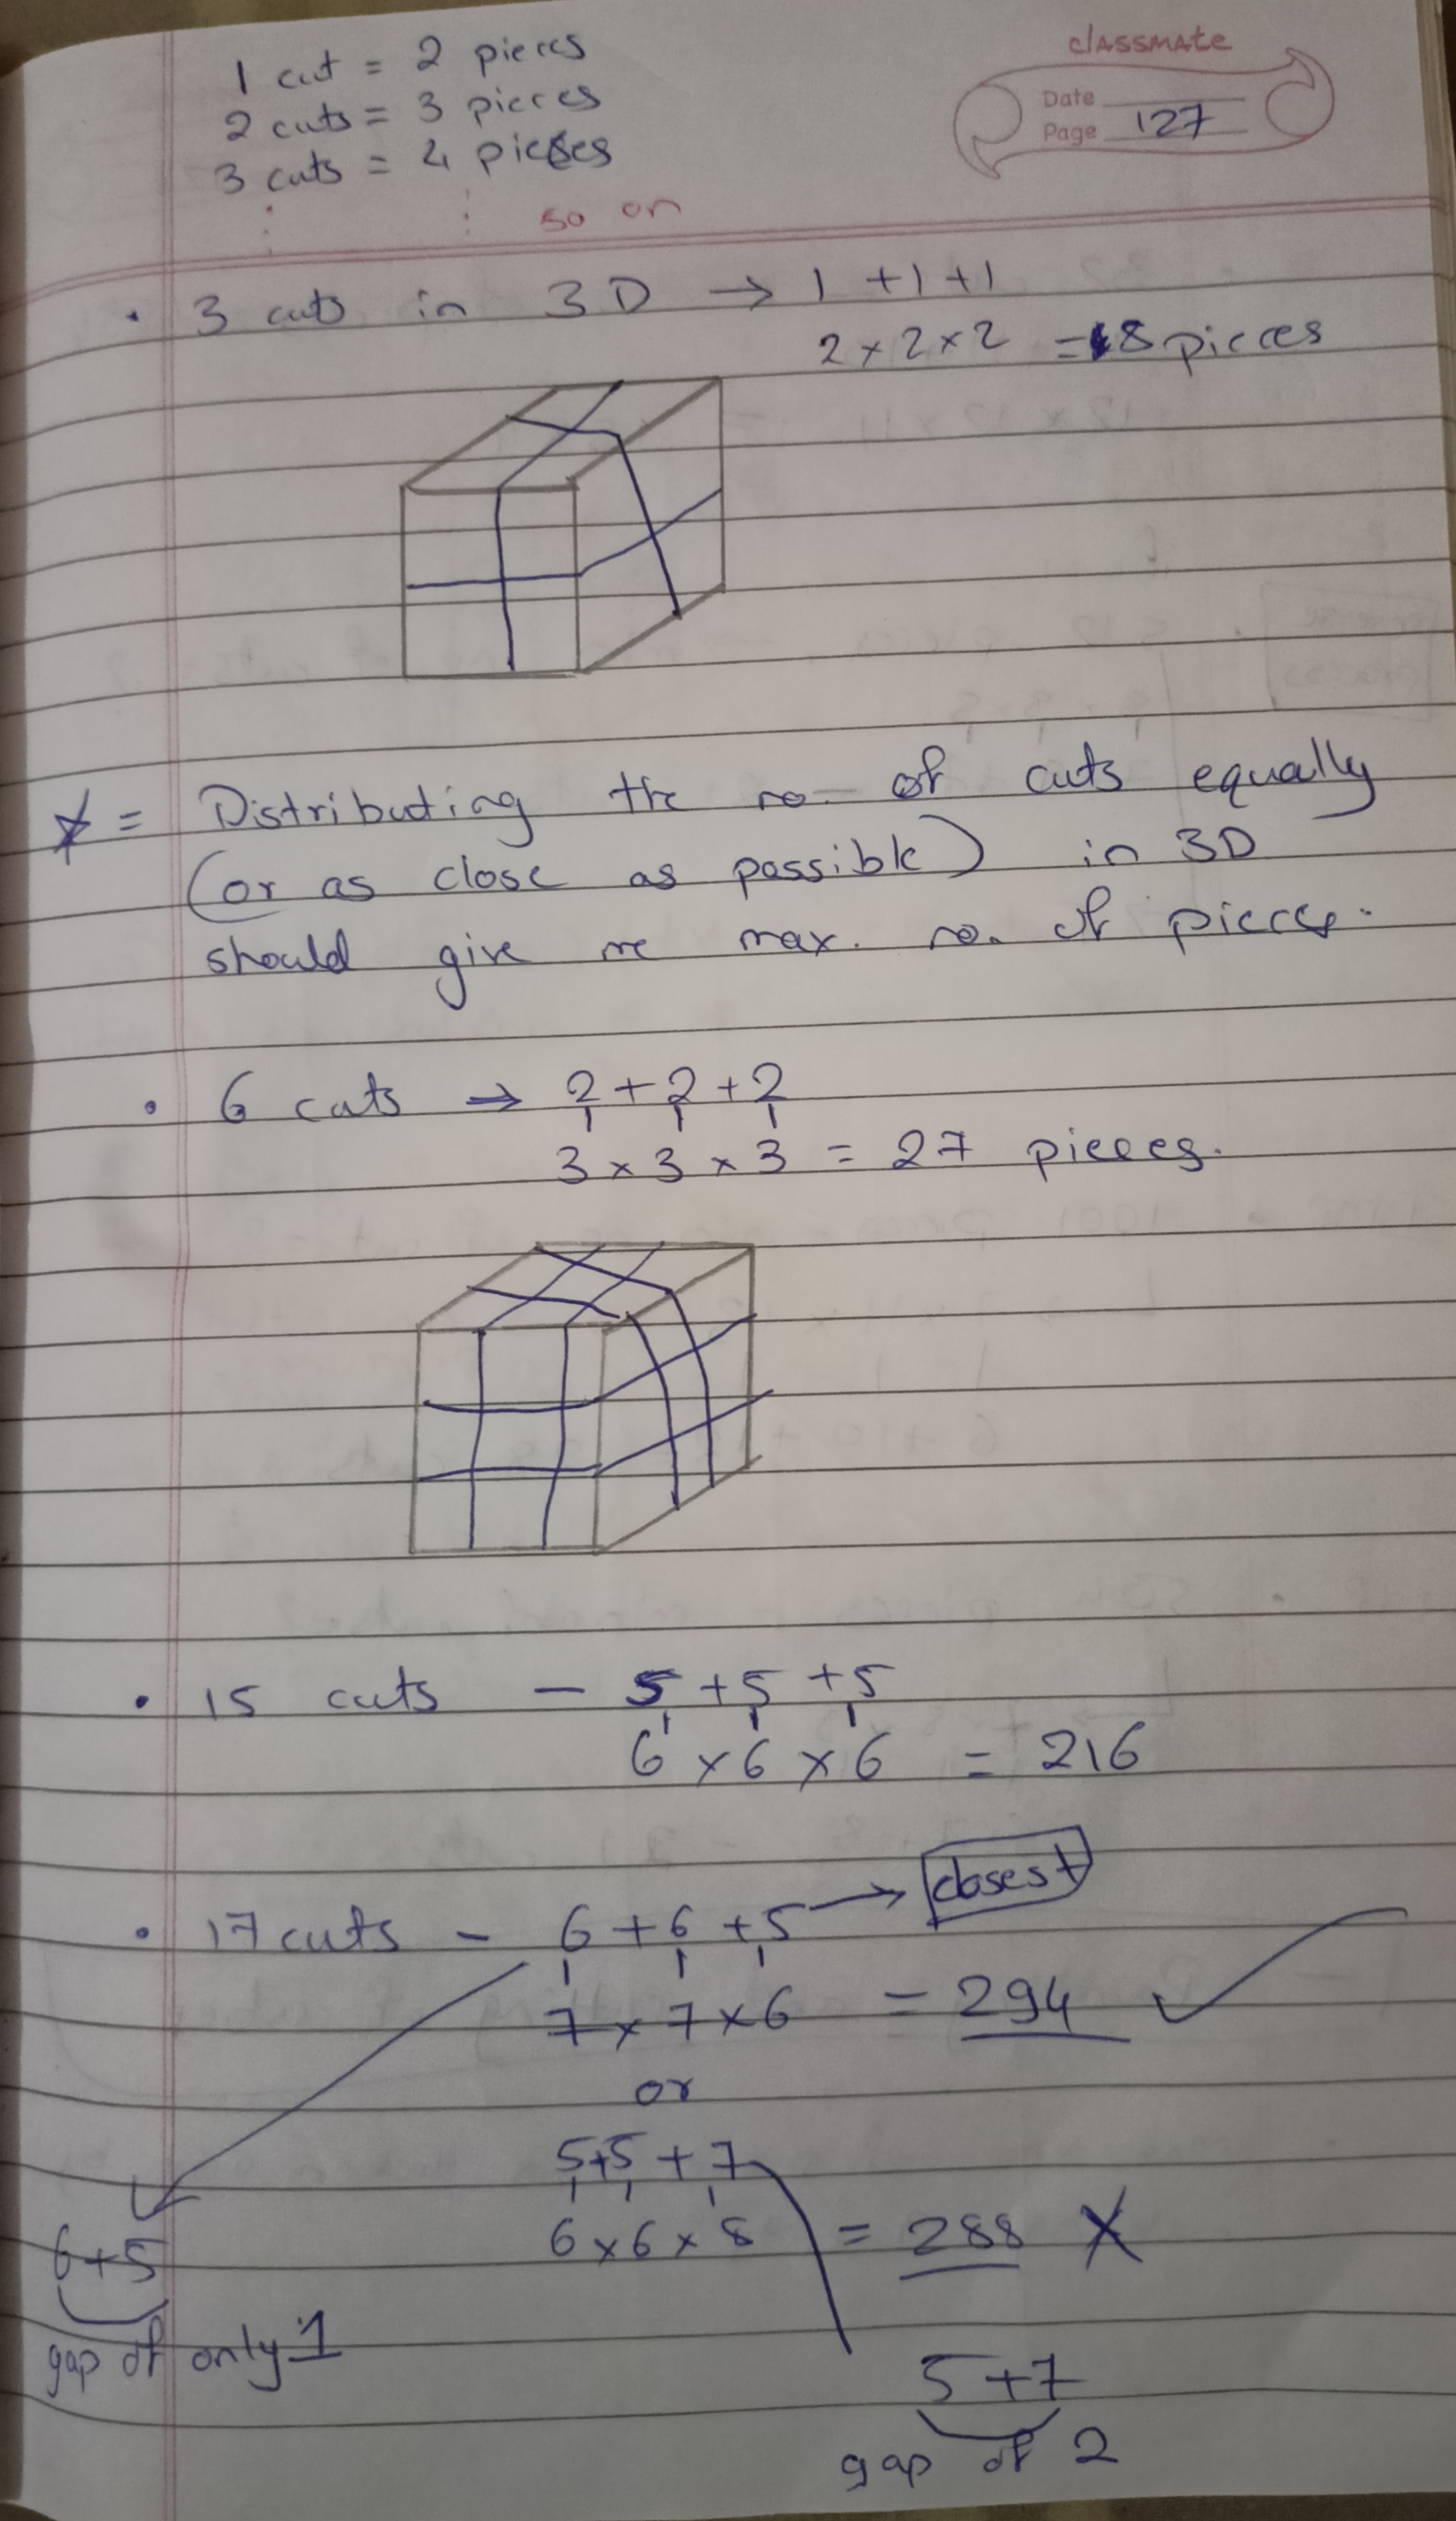 1 cut = 2 pieces
2 cuts = 3 pieces
3 cuts = 4 pieces
⋮ ⋮ so on
classmate
Date
Page 127
• 3 cuts in 3D → 1 + 1 + 1
2 × 2 × 2 = 8 pieces
* = Distributing the no. of cuts equally
(or as close as possible) in 3D
should give me max. no. of pieces.
• 6 cuts → 2 + 2 + 2
3 × 3 × 3 = 27 pieces.
• 15 cuts – 5 + 5 + 5
6 × 6 × 6 = 216
• 17 cuts – 6 + 6 + 5 → closest
7 × 7 × 6 = 294 ✓
or
5 + 5 + 7
6 × 6 × 8 = 288 X
6 + 5
gap of only 1
5 + 7
gap of 2